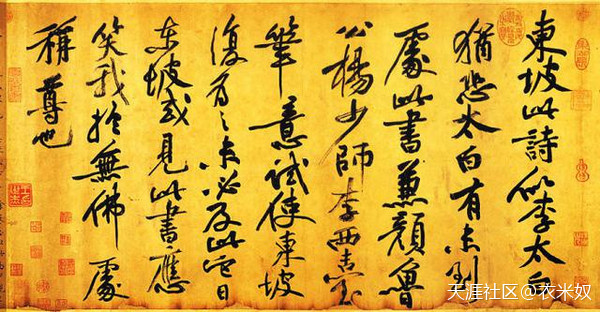 東坡此詩似李太白
猶恐太白有未到
處此書兼顏魯
公楊少師李西臺
筆意試使東坡
復為之未必及此它日
东坡或見此書應
笑我於無佛處
稱尊也
天涯社区@衣米奴